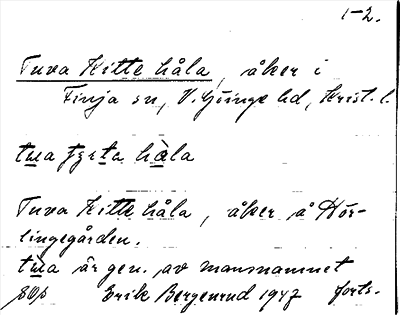 1-2.
Tuva Kitte håla, åker i
Finja sn, V. Göinge hd, Krist. l.
tua håla
Tuva Kitte håla, åker å Hör-
lingegården.
tua är gen. av mansnamnet
Erik Bergenrud 1947 forts.